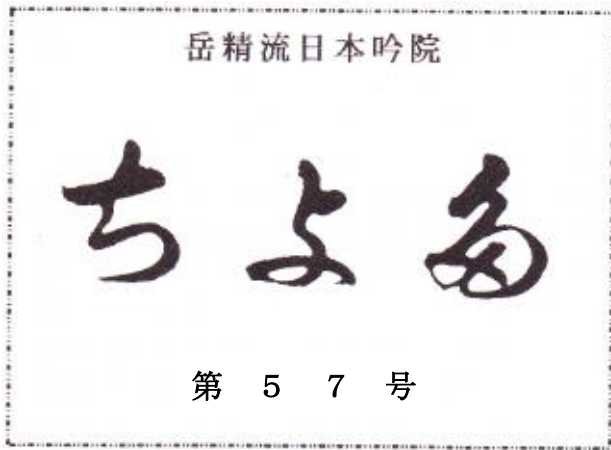 岳精流日本吟院
ちよ多
第57号